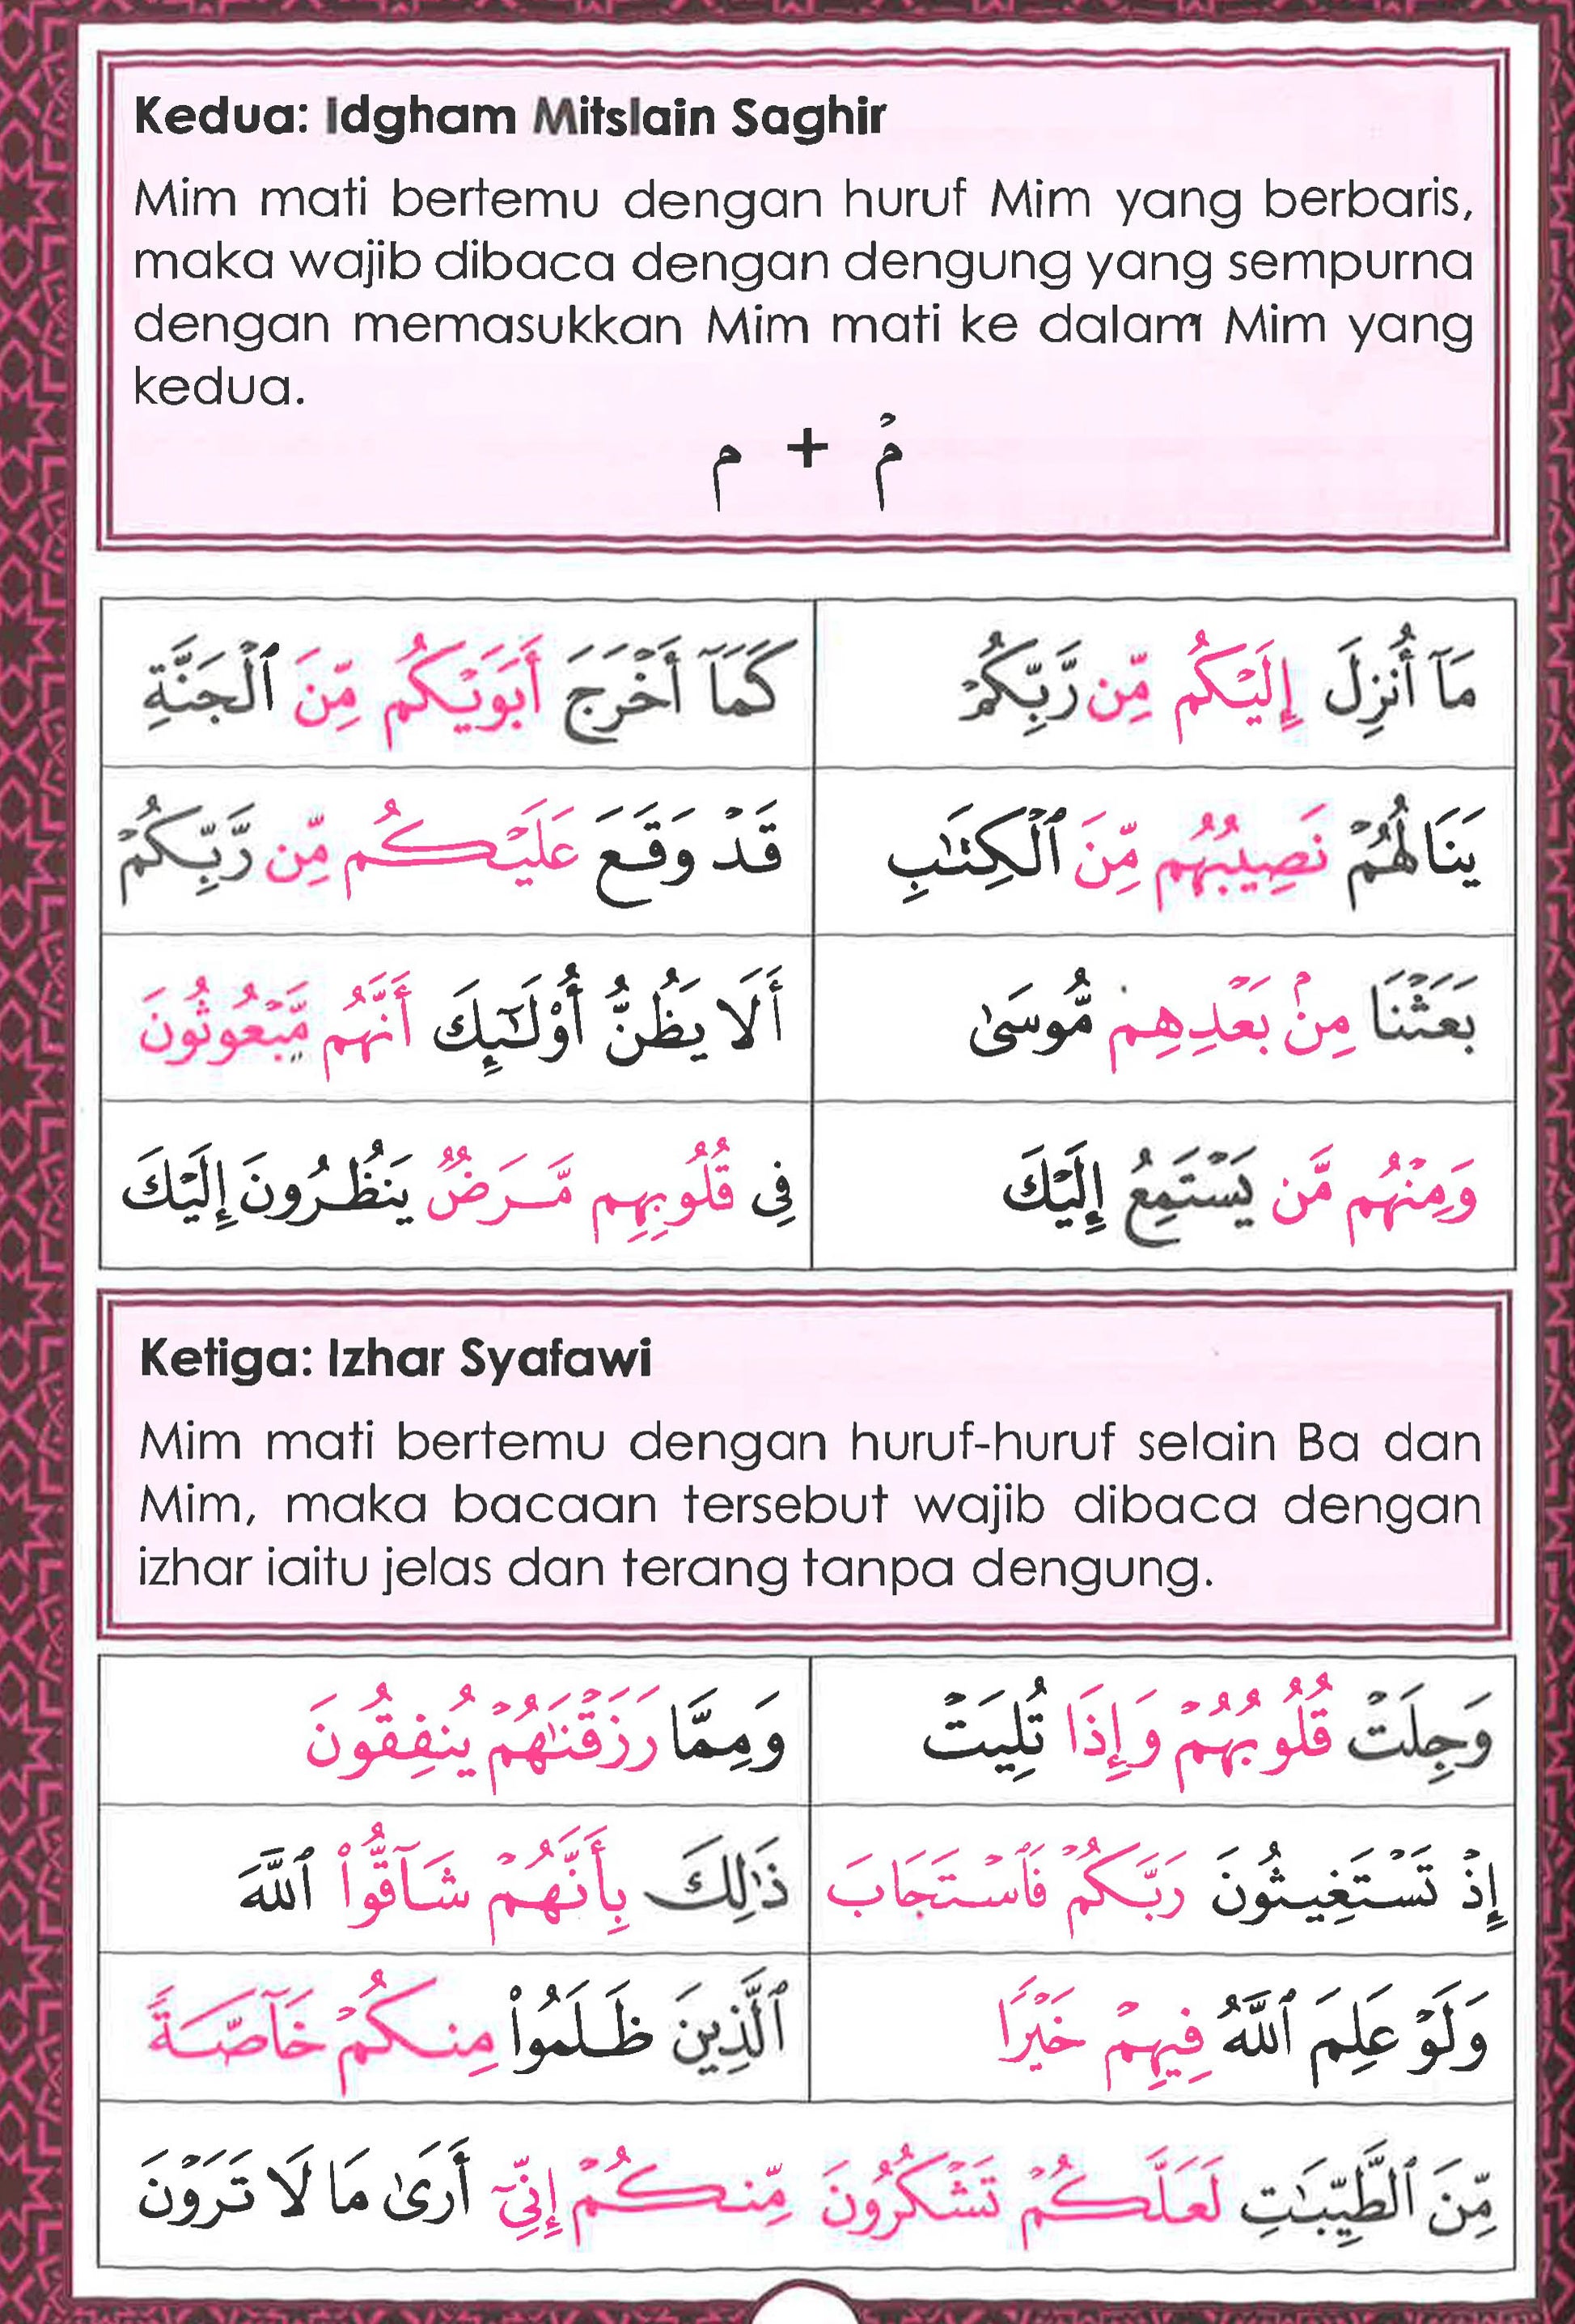 Kedua: Idgham Mitslain Saghir
Mim mati bertemu dengan huruf Mim yang berbaris,
maka wajib dibaca dengan dengung yang sempurna
dengan memasukkan Mim mati ke dalam Mim yang
kedua.
مۡ + م
مَآ أُنزِلَ إِلَيۡكُم مِّن رَّبِّكُمۡ
كَمَآ أَخۡرَجَ أَبَوَيۡكُم مِّنَ ٱلۡجَنَّةِ
يَنَالُهُمۡ نَصِيبُهُم مِّنَ ٱلۡكِتَٰبِ
قَدۡ وَقَعَ عَلَيۡكُم مِّن رَّبِّكُمۡ
بَعَثۡنَا مِنۢ بَعۡدِهِم مُّوسَىٰ
أَلَا يَظُنُّ أُوْلَٰٓئِكَ أَنَّهُم مَّبۡعُوثُونَ
وَمِنۡهُم مَّن يَسۡتَمِعُ إِلَيۡكَ
فِي قُلُوبِهِم مَّرَضٞ يَنظُرُونَ إِلَيۡكَ
Ketiga: Izhar Syafawi
Mim mati bertemu dengan huruf-huruf selain Ba dan
Mim, maka bacaan tersebut wajib dibaca dengan
izhar iaitu jelas dan terang tanpa dengung.
وَجِلَتۡ قُلُوبُهُمۡ وَإِذَا تُلِيَتۡ
وَمِمَّا رَزَقۡنَٰهُمۡ يُنفِقُونَ
إِذۡ تَسۡتَغِيثُونَ رَبَّكُمۡ فَٱسۡتَجَابَ
ذَٰلِكَ بِأَنَّهُمۡ شَآقُّواْ ٱللَّهَ
وَلَوۡ عَلِمَ ٱللَّهُ فِيهِمۡ خَيۡرٗا
ٱلَّذِينَ ظَلَمُواْ مِنكُمۡ خَآصَّةٗ
مِّنَ ٱلطَّيِّبَٰتِ لَعَلَّكُمۡ تَشۡكُرُونَ مِّنكُمۡ إِنِّيٓ أَرَىٰ مَا لَا تَرَوۡنَ